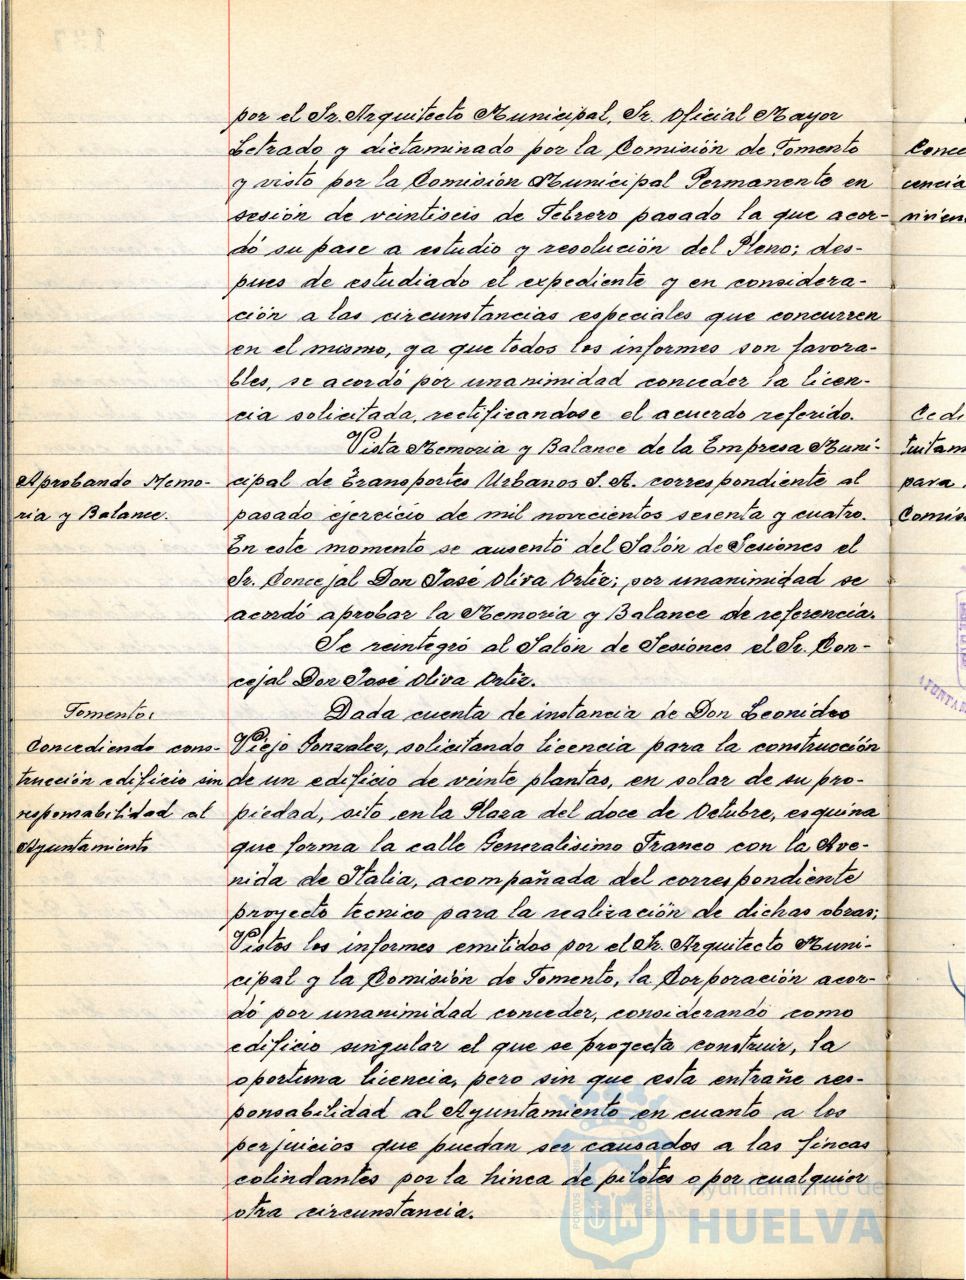 por el Sr. Arquitecto Municipal, Sr. Oficial Mayor
Letrado y dictaminado por la Comisión de Fomento
y visto por la Comisión Municipal Permanente en
sesión de veintiseis de Febrero pasado la que acor-
dó su pase a estudio y resolución del Pleno; des-
pues de estudiado el expediente y en considera-
ción a las circunstancias especiales que concurren
en el mismo, ya que todos los informes son favora-
bles, se acordó por unanimidad conceder la licen-
cia solicitada, rectificandose el acuerdo referido.
Vista Memoria y Balance de la Empresa Muni-
Aprobando Memo-
ria y Balance.
cipal de Transportes Urbanos S. A. correspondiente al
pasado ejercicio de mil novecientos sesenta y cuatro.
En este momento se ausentó del Salón de Sesiones el
Sr. Concejal Don José Oliva Ortiz; por unanimidad se
acordó aprobar la Memoria y Balance de referencia.
Se reintegró al Salón de Sesiones el Sr. Con-
cejal Don José Oliva Ortiz.
Fomento:
Concediendo cons-
trucción edificio sin
responsabilidad al
Ayuntamiento
Dada cuenta de instancia de Don Leonides
Viejo Gonzalez, solicitando licencia para la construcción
de un edificio de veinte plantas, en solar de su pro-
piedad, sito en la Plaza del doce de Octubre, esquina
que forma la calle Generalisimo Franco con la Ave-
nida de Italia, acompañada del correspondiente
proyecto tecnico para la realización de dichas obras;
Vistos los informes emitidos por el Sr. Arquitecto Muni-
cipal y la Comisión de Fomento, la Corporación acor-
dó por unanimidad conceder, considerando como
edificio singular el que se proyecta construir, la
oportuna licencia, pero sin que esta entrañe res-
ponsabilidad al Ayuntamiento en cuanto a los
perjuicios que puedan ser causados a las fincas
colindantes por la hinca de pilotes o por cualquier
otra circunstancia.
Ayuntamiento de
HUELVA